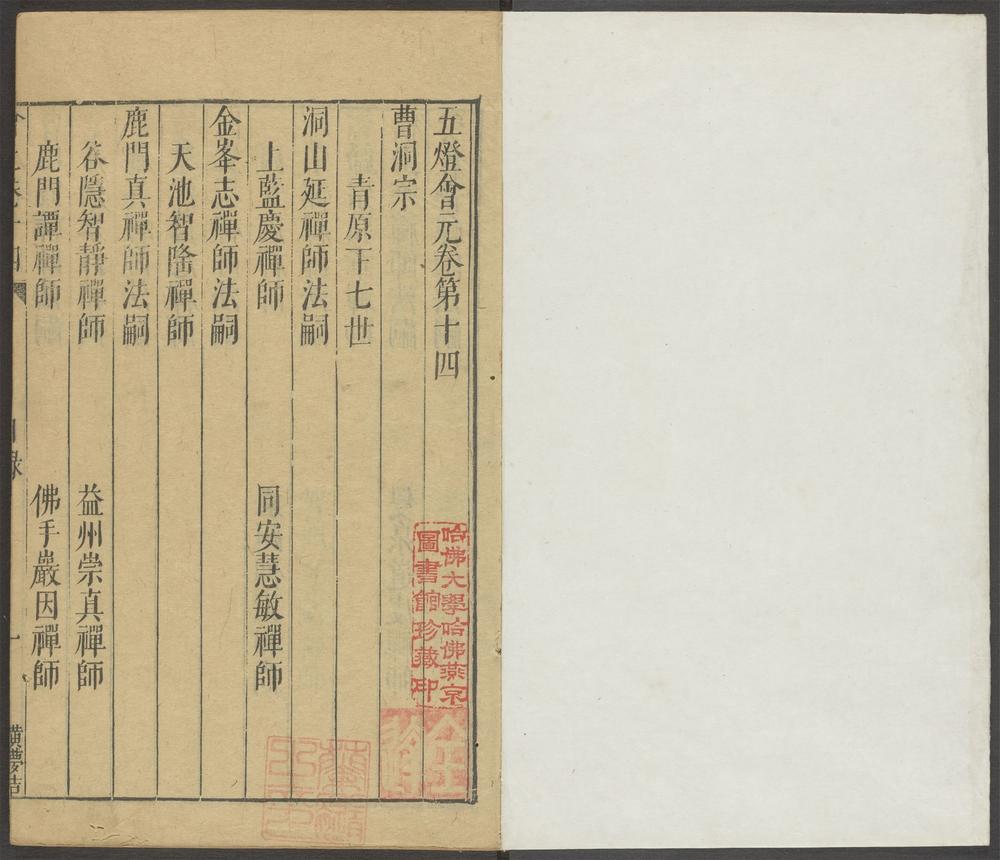 五燈會元卷第十四
曹洞宗
青原下七世
洞山延禪師法嗣
上藍慶禪師
同安慧敏禪師
金峯志禪師法嗣
天池智隆禪師
鹿門真禪師法嗣
谷隱智靜禪師
益州崇真禪師
鹿門譚禪師
佛手巖因禪師
哈佛大學哈佛燕京
圖書館珍藏印